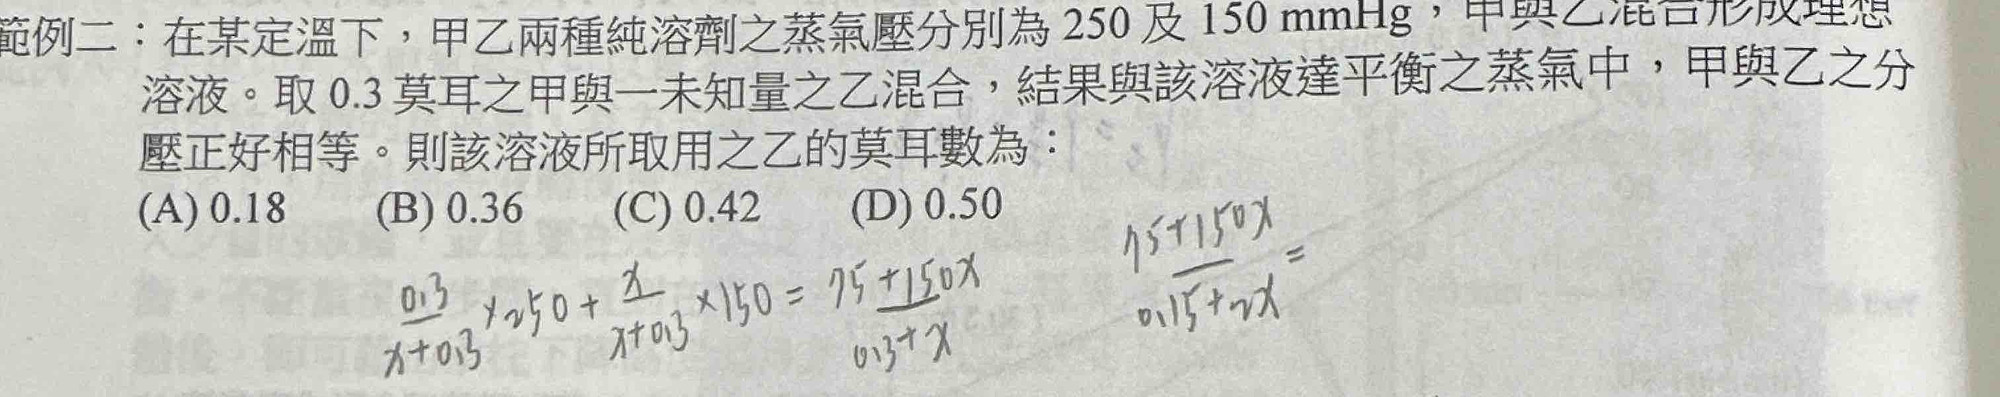 範例二：在某定溫下，甲乙兩種純溶劑之蒸氣壓分別為 250 及 150 mmHg，甲與乙混合形成理想
溶液。取 0.3 莫耳之甲與一未知量之乙混合，結果與該溶液達平衡之蒸氣中，甲與乙之分
壓正好相等。則該溶液所取用之乙的莫耳數為：
(A) 0.18 (B) 0.36 (C) 0.42 (D) 0.50
0.3/x+0.3 ×250 + x/x+0.3 ×150 = 75+150x/0.3+x
75+150x/0.15+2x =